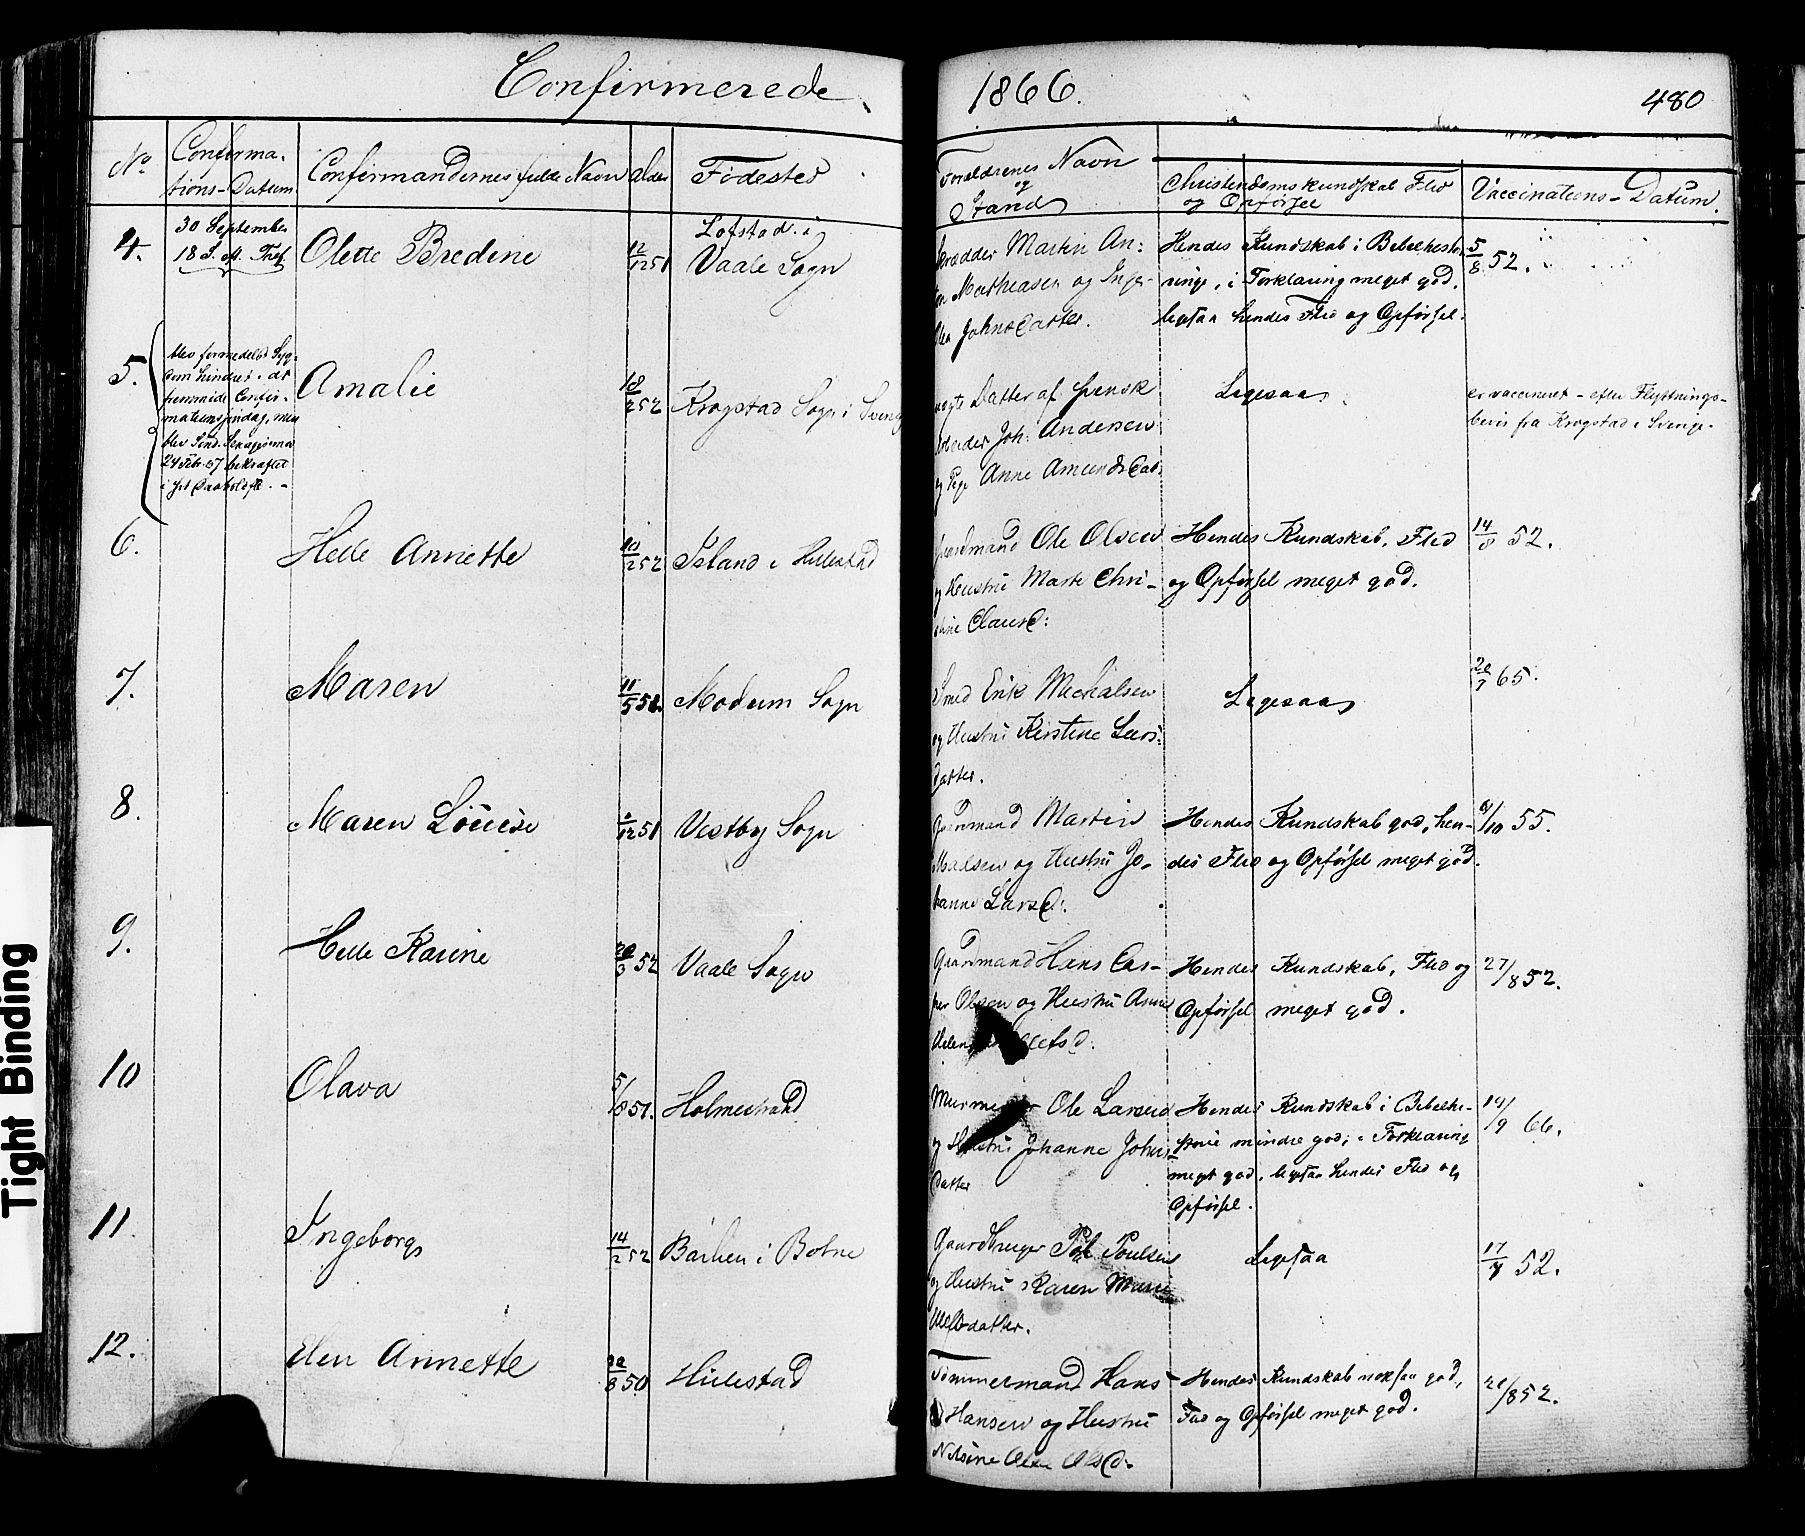 Confirmerede
1866.
480
No
Confirma-
tions-Datum
Confirmandernes fulde Navn
Alder
Fødested
Forældrenes Navn
og
Stand
Christendomskundskab Flid
og Opførsel
Vaccinations-Datum.
4.
30 September
18 S. eft. Tref.
Olette Bredine
12/12 51
Lofstad i
Vaale Sogn
Skrædder Martin An-
Mathiasen og Inge-
Johnsdatter.
Hendes Kundskab i Bibelhisto-
rie, i Forklaring meget god,
ligesaa hendes Flid og Opførsel.
5/8 52.
5.
blev formedelst Syg-
dom hindret i at
fremmøde Confir-
mationssøndag, men
blev Sønd. Sexagesima
24 Feb. 67 bekræftet
Amalie
18/2 52
Krogstad Sogn i Sverig
uægte Datter af svensk
Arbeider Joh: Andersen
og Pige Anne Amundsdat
Ligesaa
er vaccineret - efter Flyttnings-
bevis fra Krogstad i Sverige.
6.
Helle Annette
10/2 52
Island i Hillestad
Gaardmand Ole Olsen
og Hustru Marte Chri-
stine Clausd:
Hendes Kundskab, Flid
og Opførsel meget god.
14/8 52.
7.
Maren
11/5 51.
Modum Sogn
Smed Erik Michalsen
og Hustru Kirstine Lars-
datter.
Ligesaa
20/7 65.
8.
Maren Lovise
/12 51
Vestby Sogn
Gaardmand Martin
Madsen og Hustru Jo-
hanne Larsd:
Hendes Kundskab god, hen-
des Flid og Opførsel meget god.
9/10 55.
9.
Helle Karine
20/3 52
Vaale Sogn
Gaardmand Hans Cas-
per Olsen og Hustru Anne
Helen
Hendes Kundskab, Flid og
Opførsel meget god.
27/8 52.
10
Olava
5/8 51.
Holmestrand
Murmester Ole Larsen
og Hustru Johanne Johns-
datter
Hendes Kundskab i Bibelhi-
storie mindre god, i Forklaring
meget god, ligesaa hendes Flid og
Opførsel.
19/9 66.
11.
Ingeborg
14/2 52
Barken i Botne
Gaardbruger Pol Poulsen
og Hustru Karen Marie
datter.
Ligesaa
17/7 52.
12.
Elen Annette
22/8 50
Hillestad
Tømmermand Hans
Hansen og Hustru
Nilsine Olea Olsd.
Hendes Kundskab noksaa god,
Flid og Opførsel meget god.
21/8 52.
Tight Binding